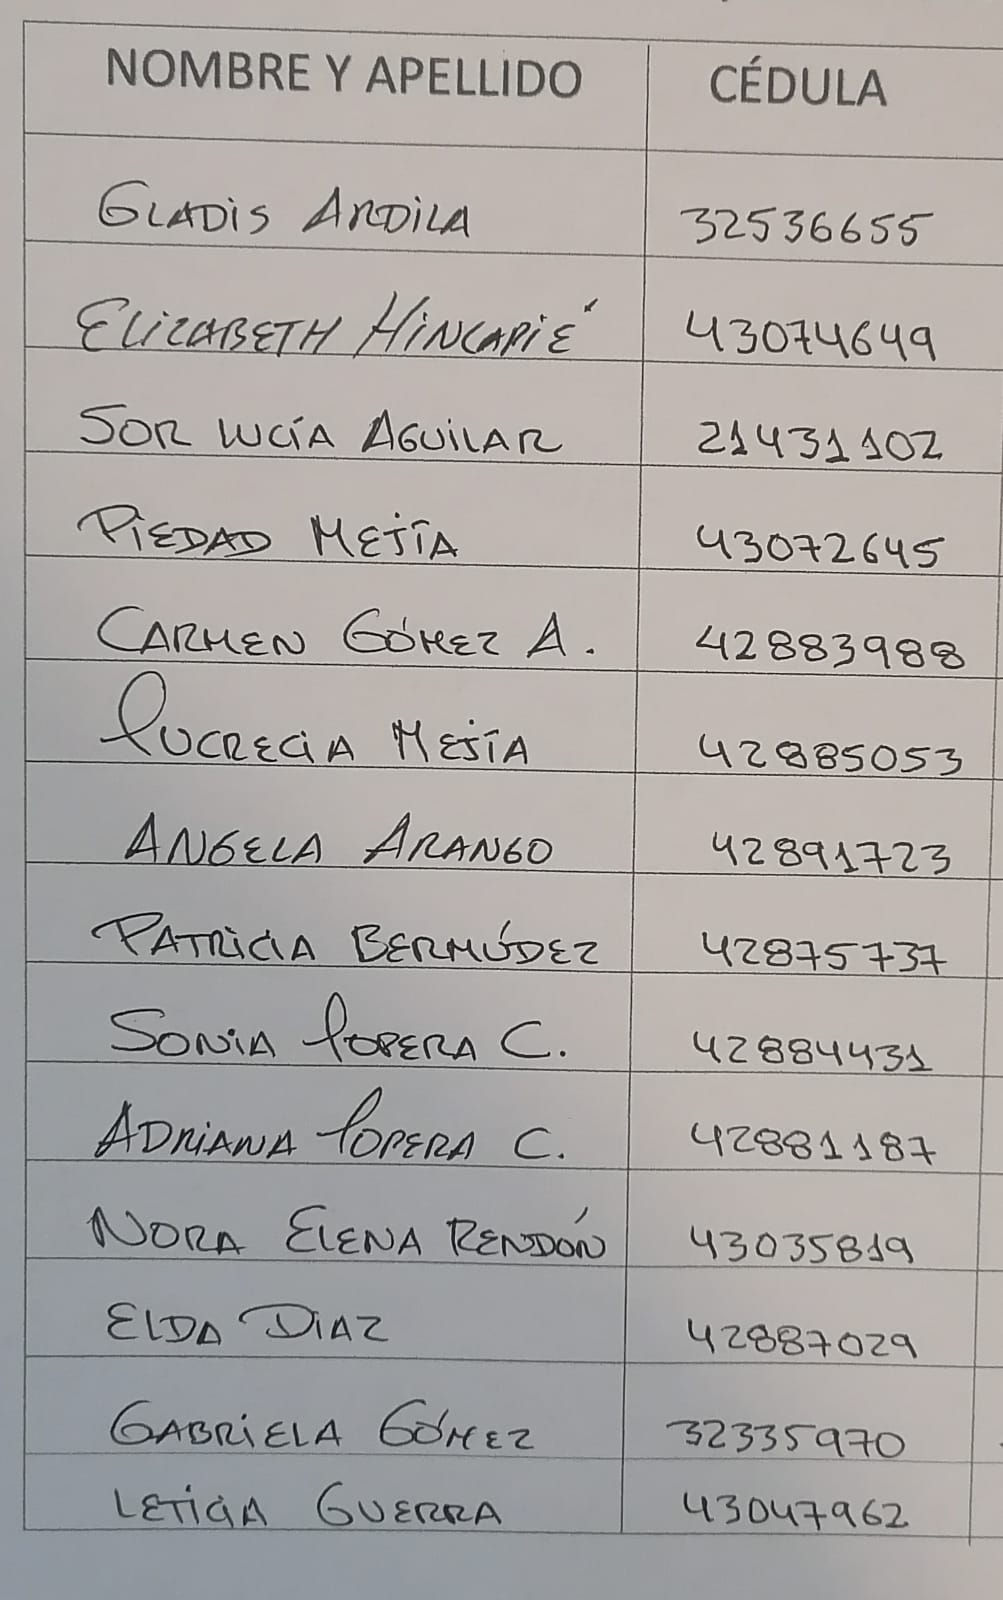 NOMBRE Y APELLIDO CÉDULA
GLADIS ARDILA 32536655
ELIZABETH HINCAPIÉ 43074649
SOR LUCÍA AGUILAR 21431102
PIEDAD MEJÍA 43072645
CARMEN GÓMEZ A. 42883988
LUCRECIA MEJÍA 42885053
ANGELA ARANGO 42891723
PATRICIA BERMÚDEZ 42875737
SONIA LOPERA C. 42884431
ADRIANA LOPERA C. 42881187
NORA ELENA RENDÓN 43035819
ELDA DIAZ 42887029
GABRIELA GÓMEZ 32335970
LETICIA GUERRA 43047962